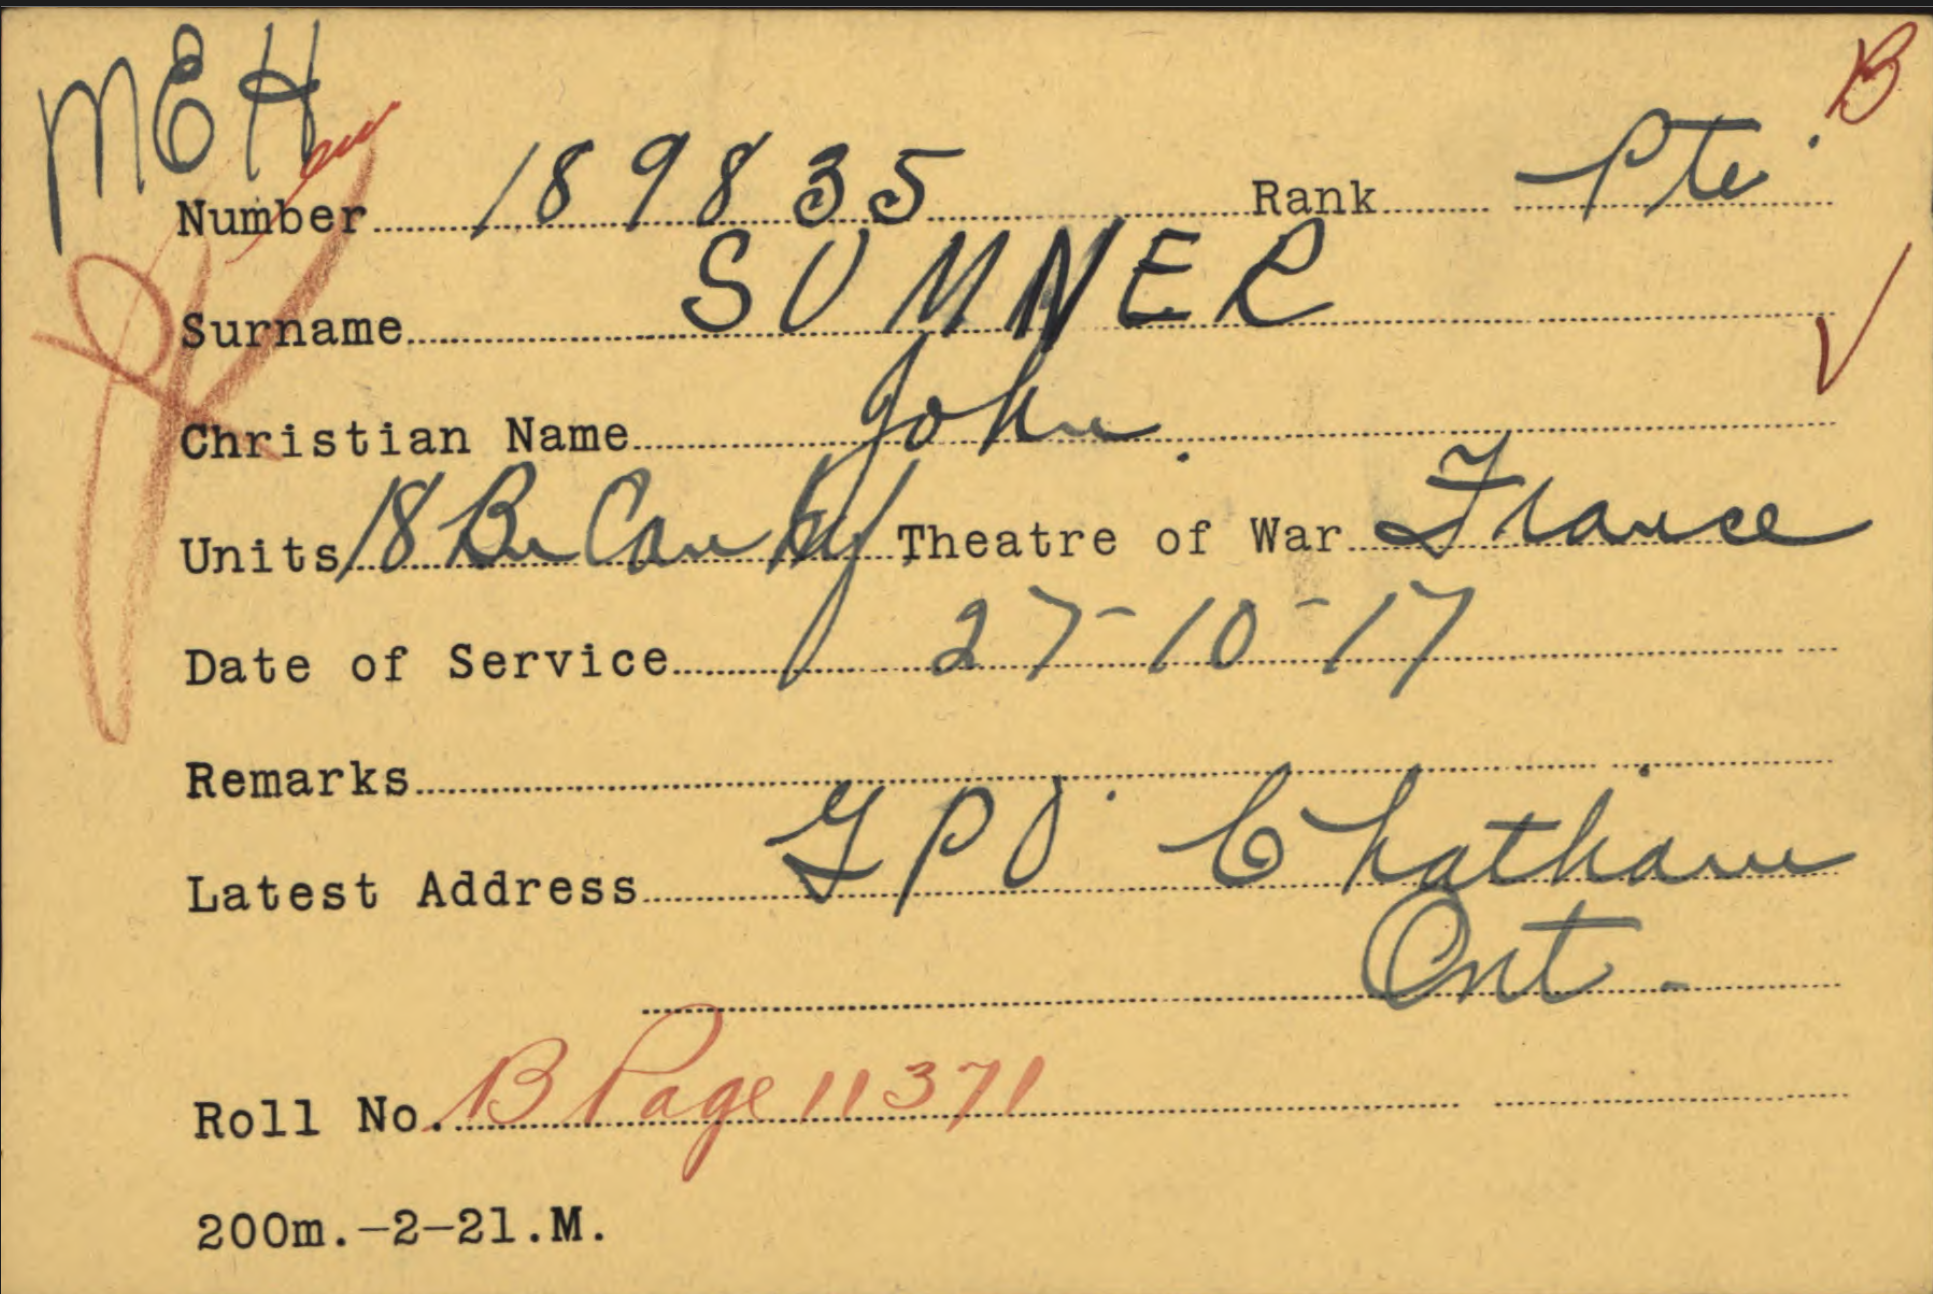 MEH
B
Number 189835 Rank Pte.
Surname SUMNER
Christian Name John.
Units 18 Bn Can Inf Theatre of War France
Date of Service 27-10-17
Remarks
Latest Address GPO. Chatham
Ont-
Roll No. B Page 11371
200m.-2-21.M.